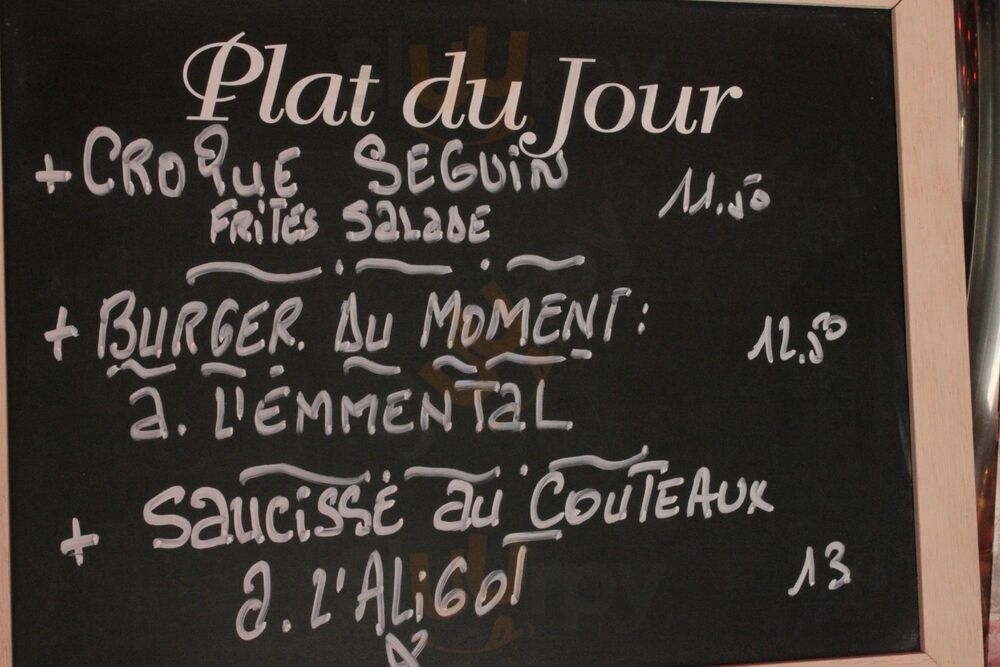 Plat du Jour
+ CROQUE SEGUIN 11.50
FRITES SALADE
+ BURGER. DU MOMENT: 12.50
a. L'EMMENTAL
+ SAUCISSE AU COUTEAUX
a. L'ALIGOT 13